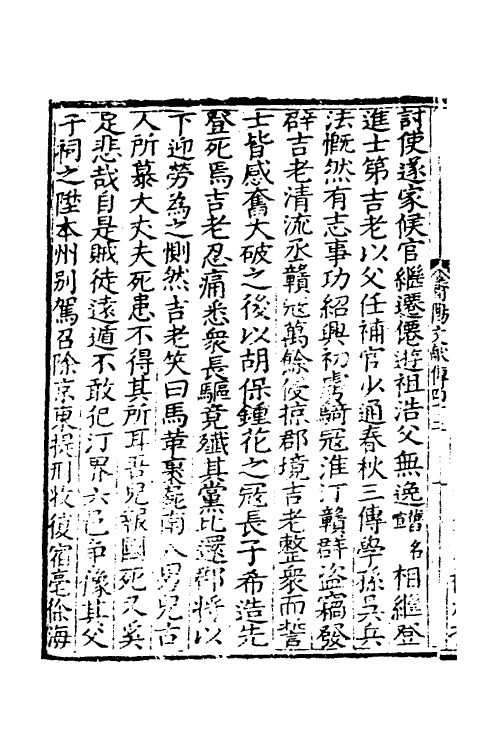 討使遂家候官繼遷僊遊祖浩父無逸舊名相繼登
進士第吉老以父任補官少通春秋三傳學孫吳兵
法慨然有志事功紹興初虜騎寇淮汀贛群盗竊發
辟吉老清流丞贛寇萬餘侵掠郡境吉老整衆而誓
士皆感奮大破之後以胡保鍾花之寇長子希造先
登死焉吉老忍痛悉衆長驅竟殲其黨比還郡將以
下迎勞為之惻然吉老笑曰馬革裹屍南人男兒古
人所慕大丈夫死患不得其所耳吾兒報國死又奚
足悲哉自是賊徒遠遁不敢犯汀界六邑爭像其父
子祠之陞本州别駕召除京東提刑收復宿亳徐海
莆陽文獻傳四十三